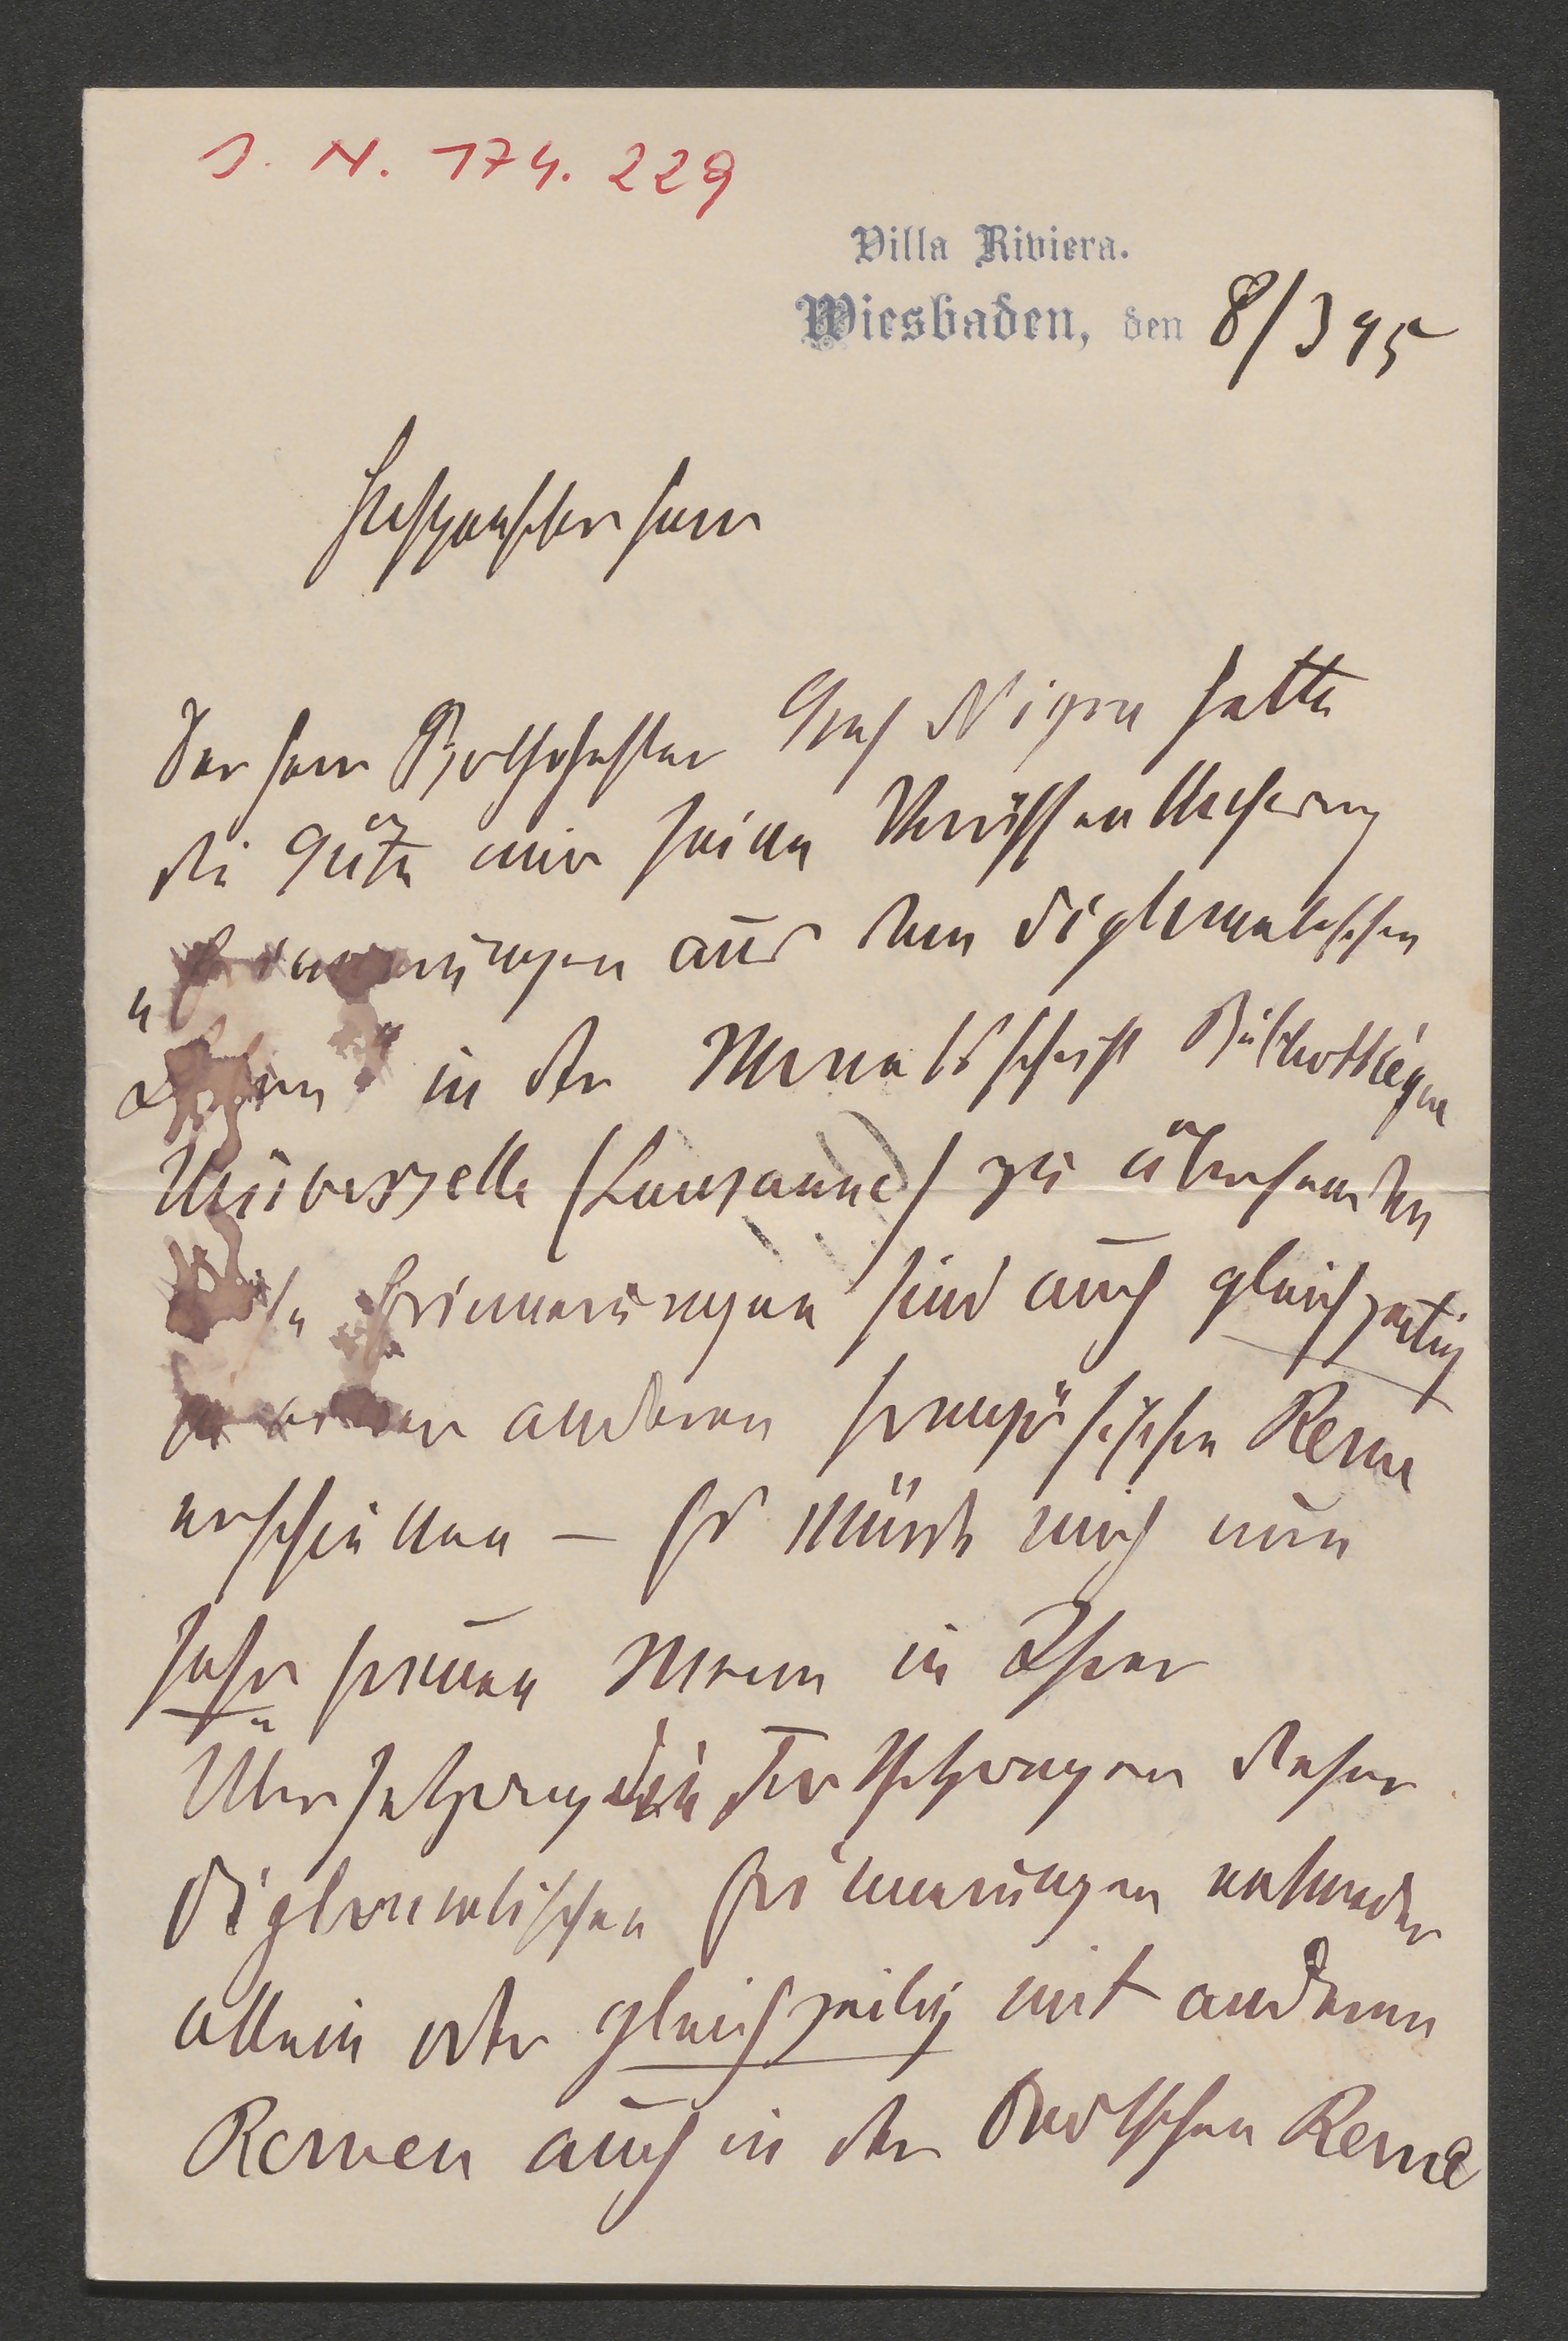 J. N. 174.229
Villa Riviera.
Wiesbaden, den 8/3 95
Hochgeehrter Herr
Der Herr Botschafter Graf Nigra hatte
die Güte mir seine Veröffentlichung
„Erinnerungen aus dem diplomatischen
Leben“ in der Monatsschrift Bibliothèque
Universelle (Lausanne) zu übersenden
Diese Erinnerungen sind auch gleichzeitig
in einer anderen französischen Revue
erschienen – Es würde mich nun
sehr freuen wenn in Ihrer
Übersetzung die Fortsetzungen dieser
diplomatischen Erinnerungen entweder
allein oder gleichzeitig mit anderen
Revuen auch in der Deutschen Revue